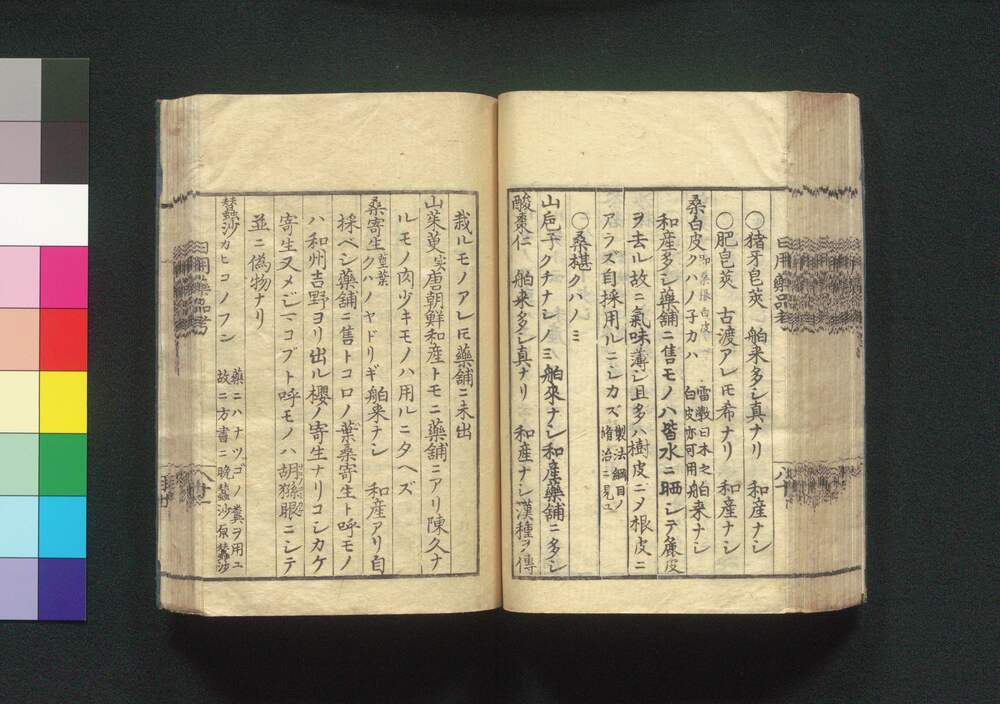 ○猪牙皂莢 舶来多シ真ナリ 和産ナシ
○肥皂莢 古渡アレ𪜈希ナリ 和産ナシ
桑白皮 即桑根白皮 クハノ子カハ 雷斅曰木之白皮亦可用 舶来ナシ
和産多シ藥舗ニ售モノハ皆水ニ晒シテ麁皮
ヲ去ル故ニ氣味薄シ且多ハ樹皮ニ〆根皮ニ
アラズ自採用ルニシカズ 製法綱目ノ脩治ニ見ユ
○桑椹クハノミ
山梔子クチナシノミ舶來ナシ和産藥舗ニ多シ
酸棗仁 舶来多シ真ナリ 和産ナシ漢種ヲ傳
栽ルモノアレ𪜈藥舗ニ未出
山茱萸実唐朝鮮和産トモニ藥舗ニアリ陳久ナ
ルモノ肉少キモノハ用ルニタヘズ
桑寄生 莖葉 クハノヤドリギ舶来ナシ 和産アリ自
採ベシ藥舗ニ售トコロノ葉桑寄生ト呼モノ
ハ和州吉野ヨリ出ル櫻ノ寄生ナリコシカケ
寄生又メジマコブト呼モノハ胡猻眼ニシテ
並ニ偽物ナリ
蠶沙カヒコノフン 藥ニハナツゴノ糞ヲ用ユ故ニ方書ニ晩蠶沙原蠶沙
日用藥品考
八十
日用藥品考